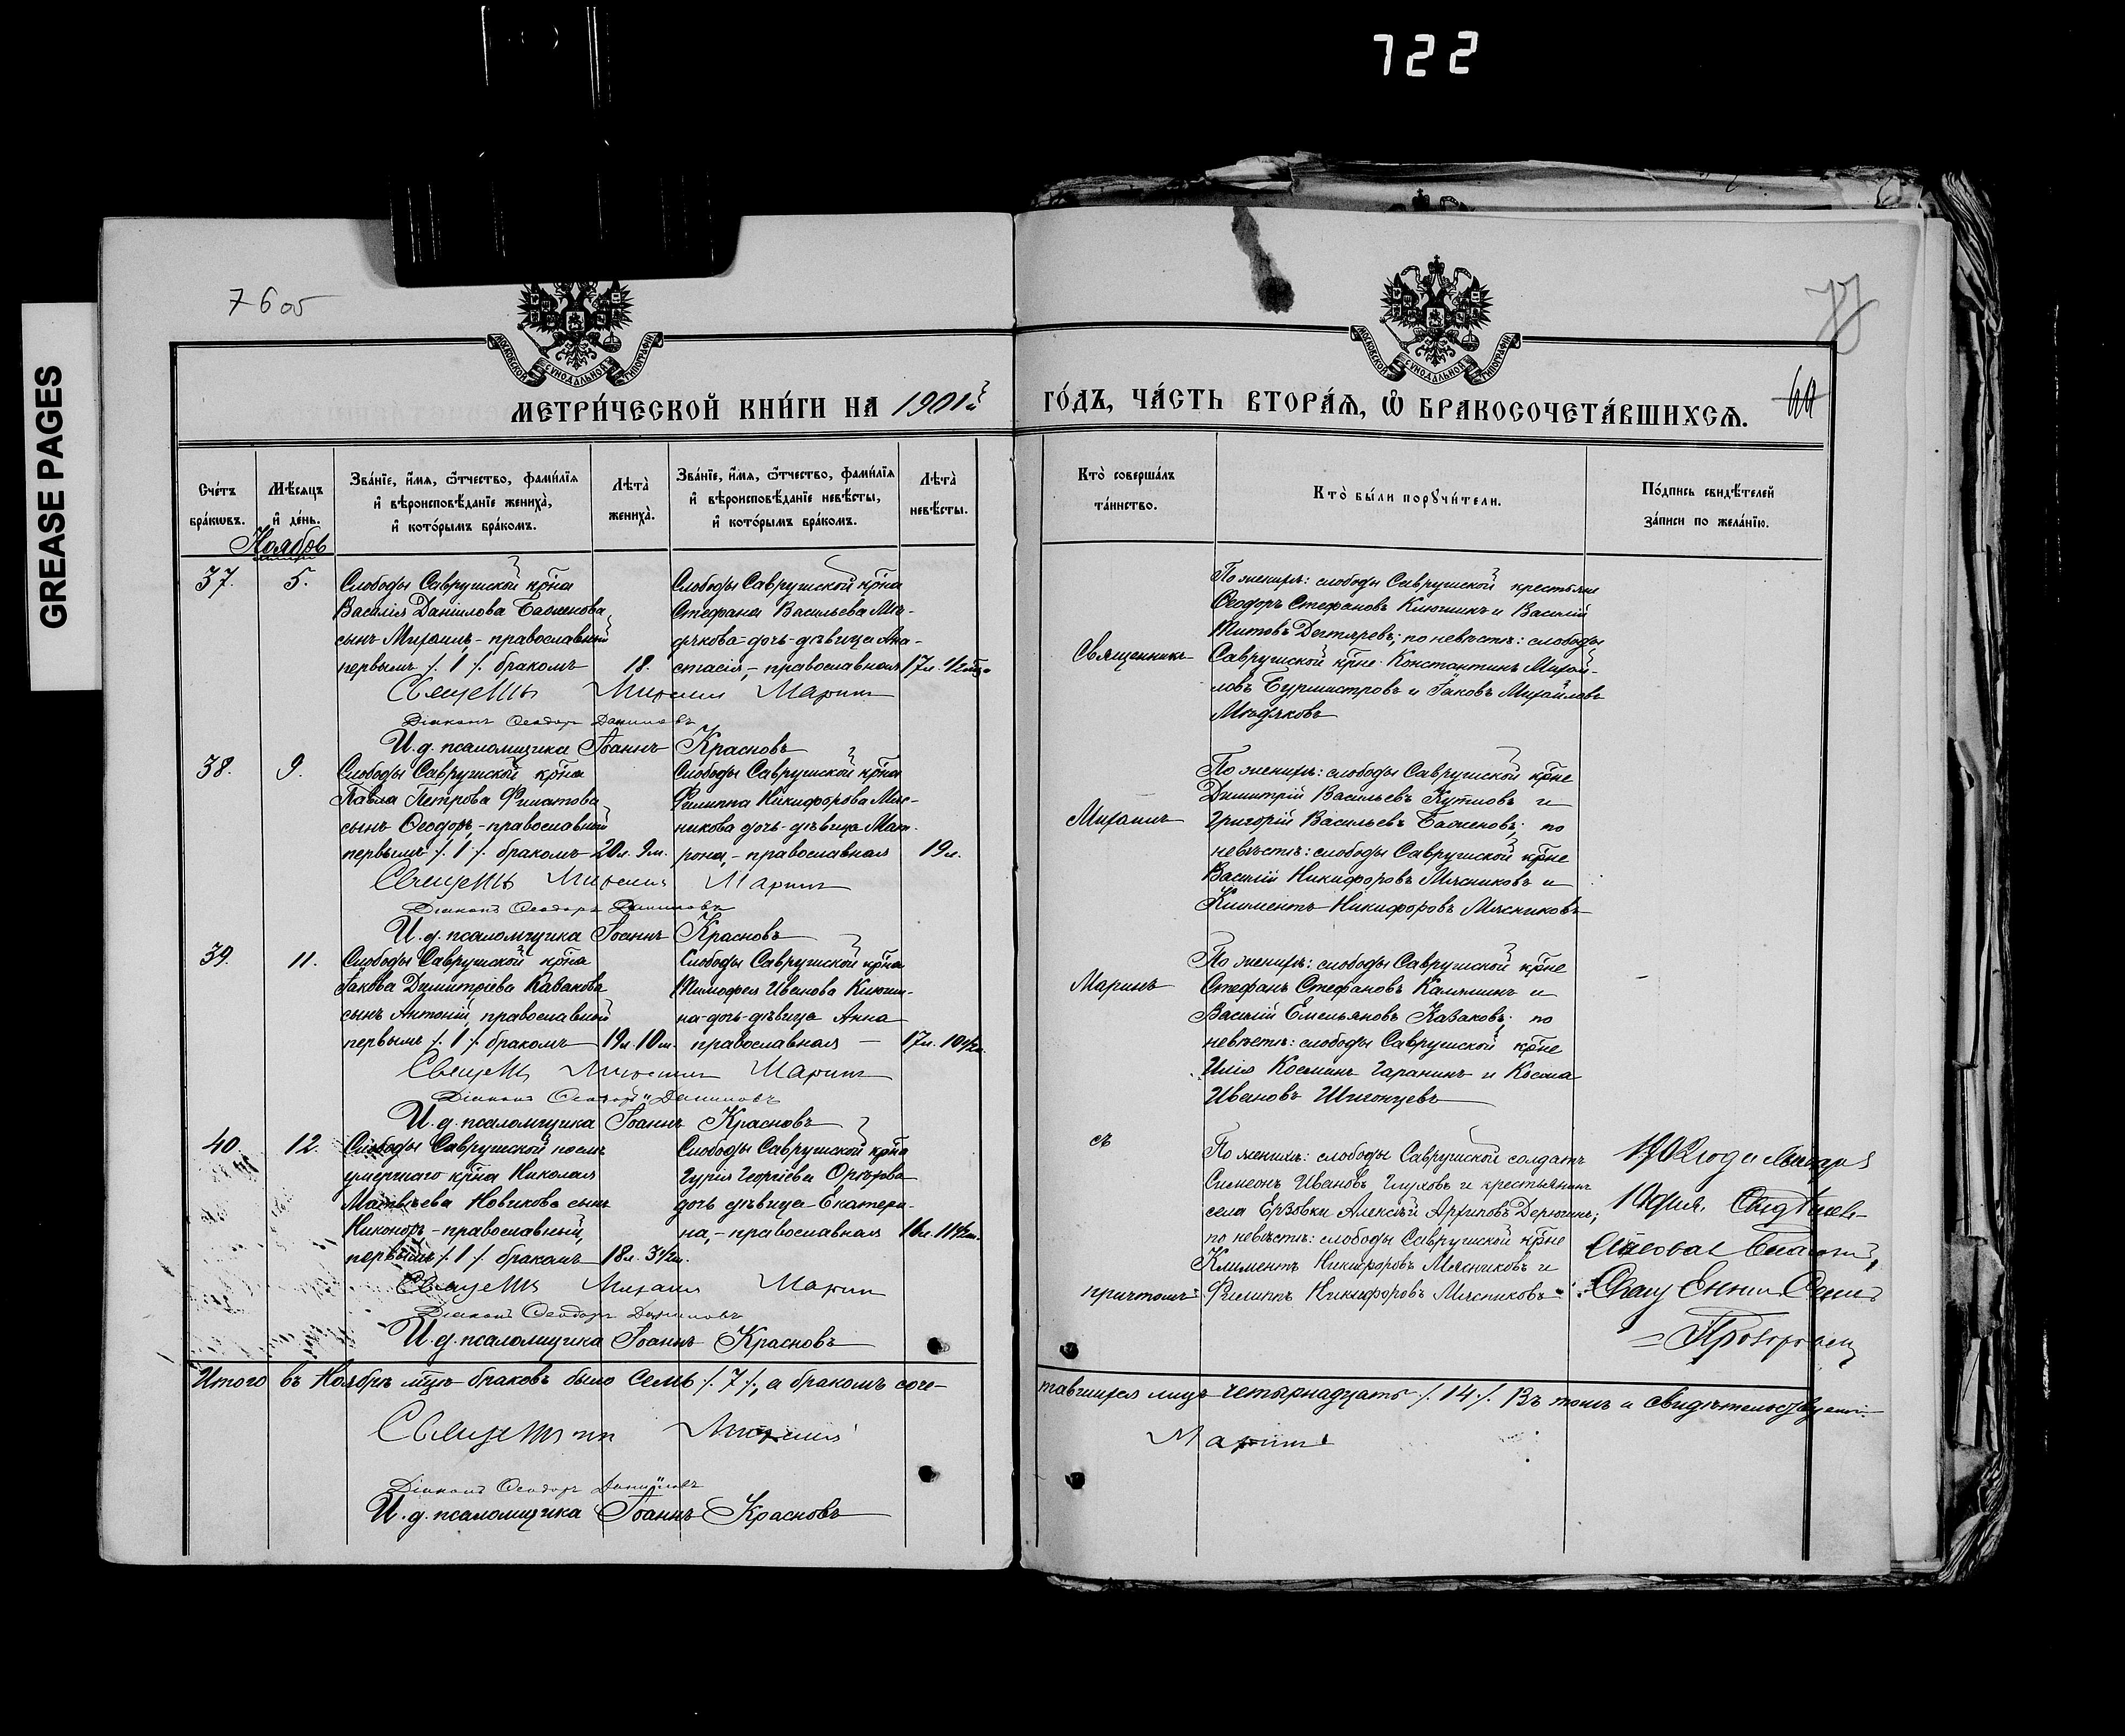 722
GREASE PAGES
7605
77
МОСКОВСКОЙ СѴНОДАЛЬНОЙ ТИПОГРАФІИ
МОСКОВСКОЙ СѴНОДАЛЬНОЙ ТИПОГРАФІИ
МЕТРИ́ЧЕСКОЙ КНИ́ГИ НА 1901й
ГО́ДЪ, ЧА́СТЬ ВТОРА́Ѧ, Ѡ҆ БРАКОСОЧЕТА́ВШИХСѦ.
Сче́тъ
бра́кѡвъ.
Мѣ́сѧцъ
и҆ де́нь.
Зва́нїе, и҆́мѧ, ѻ҆́тчество, фами́лїѧ
и҆ вѣроисповѣ́данїе жениха̀,
и҆ кото́рымъ бра́комъ.
Лѣта̀
жениха̀.
Зва́нїе, и҆́мѧ, ѻ҆́тчество, фами́лїѧ
и҆ вѣроисповѣ́данїе невѣ́сты,
и҆ кото́рымъ бра́комъ.
Лѣта̀
невѣ́сты.
Кто̀ соверша́лъ
та́инство.
Кто̀ бы́ли порꙋчи́тели.
По́дпись свидѣ́телей
за́писи по жела́нїю.
Ноябрь
37.
5.
Слободы Саврушской кр̃на
Василія Даніилова Баженова
сынъ Михаилъ,- православный
первымъ /.1/. бракомъ
18.
Слободы Саврушской кр̃на
Стефана Васильева Мѣ-
дякова-дочь-дѣвица Ана-
стасія,- православная
17л.
Священникъ
По женихѣ: слободы Саврушской крестьяне
Ѳеодоръ Стефановъ Клюшинъ и Василій
Титовъ Дегтяревъ; по невѣстѣ: слободы
Саврушской кр̃не Константинъ Михай-
ловъ Бурмистровъ и Іаковъ Михайловъ
Мѣдяковъ
Священникъ Михаилъ Маринъ
Діаконъ Ѳеодоръ Даниловъ
И.д. псаломщика Іоаннъ Красновъ
38.
9.
Слободы Саврушской кр̃на
Павла Петрова Филатова
сынъ Ѳеодоръ,- православный
первымъ /.1/. бракомъ
20л. 9м.
Слободы Саврушской кр̃на
Филиппа Никифорова Мяс-
никова дочь-дѣвица Мат-
рона,- православная
19л.
Михаилъ
По женихѣ: слободы Саврушской кр̃не
Димитрій Васильевъ Кутловъ и
Григорій Васильевъ Баженовъ; по
невѣстѣ: слободы Саврушской кр̃не
Василій Никифоровъ Мясниковъ и
Климентъ Никифоровъ Мясниковъ
Священникъ Михаилъ Маринъ
Діаконъ Ѳеодоръ Даниловъ
И.д. псаломщика Іоаннъ Красновъ
39.
11.
Слободы Саврушской кр̃на
Іакова Димитріева Казакова
сынъ Антоній, православный
первымъ /.1/. бракомъ
19л. 10м.
Слободы Саврушской кр̃на
Тимофея Иванова Клюши-
на-дочь-дѣвица Анна
православная
17л. 10½м.
Маринъ
По женихѣ: слободы Саврушской кр̃не
Стефанъ Стефановъ Каляминъ и
Василій Емельяновъ Казаковъ; по
невѣстѣ: слободы Саврушской кр̃не
Илія Косминъ Гаранинъ и Косма
Ивановъ Шигонцевъ
Священникъ Михаилъ Маринъ
Діаконъ Ѳеодоръ Даниловъ
И.д. псаломщика Іоаннъ Красновъ
40.
12.
Слободы Саврушской послѣ
умершаго кр̃на Николая
Матвѣева Новикова сынъ
Никоноръ - православный,
первымъ /.1/. бракомъ
18л. 3½м.
Слободы Саврушской кр̃на
Гурія Георгіева
дочь дѣвица Екатери-
на,- православная
16л. 11½м.
съ
причтомъ
По женихѣ: слободы Саврушской солдатъ
Симеонъ Ивановъ Глуховъ и крестьянинъ
села Ерзовки Алексѣй Архиповъ Дерюгинъ;
по невѣстѣ: слободы Саврушской кр̃не
Климентъ Никифоровъ Мясниковъ и
Филиппъ Никифоровъ Мясниковъ
1902 года Января
10 дня.
Священникъ Михаилъ Маринъ
Діаконъ Ѳеодоръ Даниловъ
И.д. псаломщика Іоаннъ Красновъ
Итого въ Ноябрѣ мцѣ браковъ было семь /.7/., а бракомъ соче-
тавшихся лицъ четырнадцать /.14/. Въ томъ и свидѣтельствуемъ:
Священникъ Михаилъ Маринъ
Діаконъ Ѳеодоръ Даниловъ
И.д. псаломщика Іоаннъ Красновъ